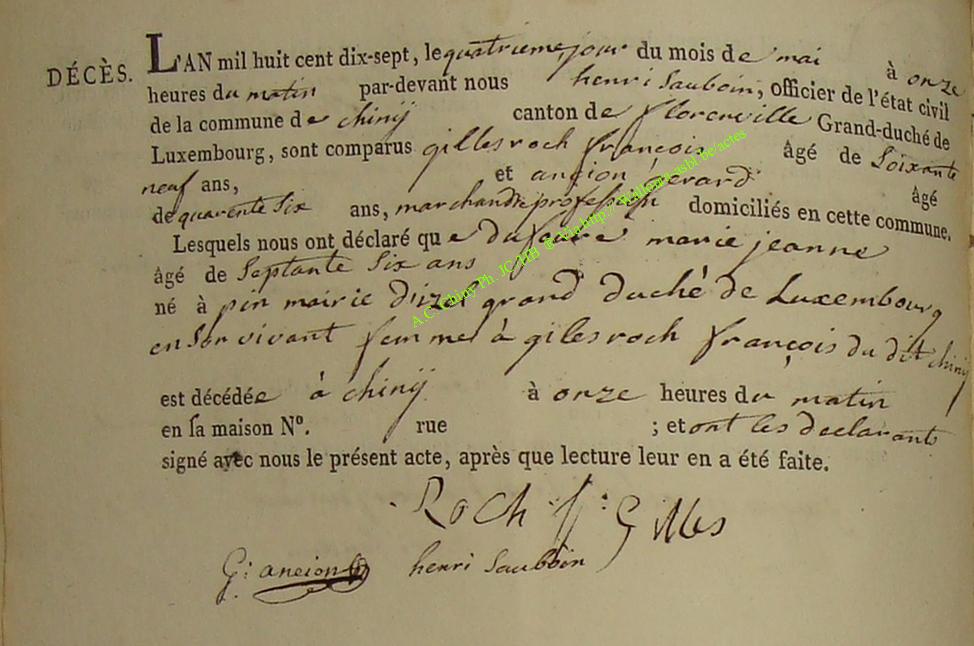 DÉCÈS. L'AN mil huit cent dix-sept, le quatrieme jour du mois de mai à onze
heures du matin par-devant nous henri Sauboin, officier de l'état civil
de la commune de chinÿ canton de florenville Grand-duché de
Luxembourg, sont comparus gilles roch françois âgé de Soixante
neuf ans, et ancion gerard âgé
de quarente Six ans, marchand de profession domiciliés en cette commune.
Lesquels nous ont déclaré que marie jeanne
âgé de Septante Six ans
né à pin mairie d'izel grand duché de Luxembourg
en Son vivant femme à giles roch françois du dit chinÿ
est décédée à chinÿ à onze heures du matin
en sa maison N°. rue ; et ont les declarants
signé avec nous le présent acte, après que lecture leur en a été faite.
Roch f: Gilles
G: ancion henri Sauboin